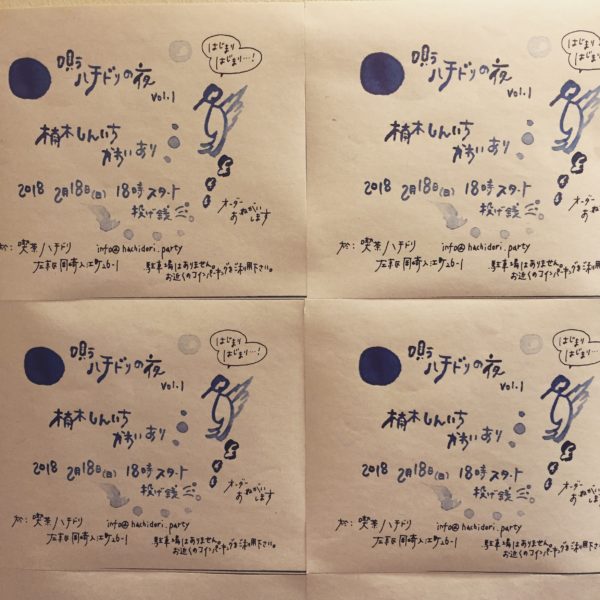 はじまり
はじまり…!
唄う
ハチドリの夜
vol.1
しんいち
あり
2018 2月18日(日) 18時スタート
投げ銭
オーダー
おねがい
します
於:喫茶ハチドリ info@hachidori.party
左京区岡崎入江町26-1
駐車場はありません。
お近くのコインパーキングをご利用下さい。
はじまり
はじまり…
唄う
ハチドリの夜
vol.1
しんいち
あり
2018 2月18日(日) 18時スタート
投げ銭
オーダー
於:喫茶ハチドリ info@hachidori.party
左京区岡崎入江町26-1
駐車場はありません。
お近くのコインパーキングをご利用下さい。
はじまり
はじまり…!
唄う
ハチドリの夜
vol.1
しんいち
あり
2018 2月18日(日) 18時スタート
投げ銭
オーダー
おねがい
します
於:喫茶ハチドリ info@hachidori.party
左京区岡崎入江町26-1
駐車場はありません。
お近くのコインパーキングをご利用下さい。
はじまり
はじまり…!
唄う
ハチドリの夜
vol.1
しんいち
あり
2018 2月18日(日) 18時スタート
投げ銭
オーダー
於:喫茶ハチドリ info@hachidori.party
左京区岡崎入江町26-1
駐車場はありません。
お近くのコインパーキングをご利用下さい。